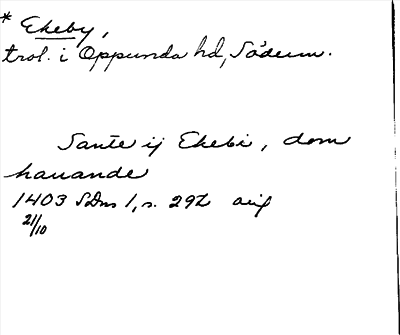 * Ekeby,
trol. i Oppunda hd, Söderm.
Sante ij Ekebi, dom
hauande
1403 SDns 1, s. 292 avig
21/10